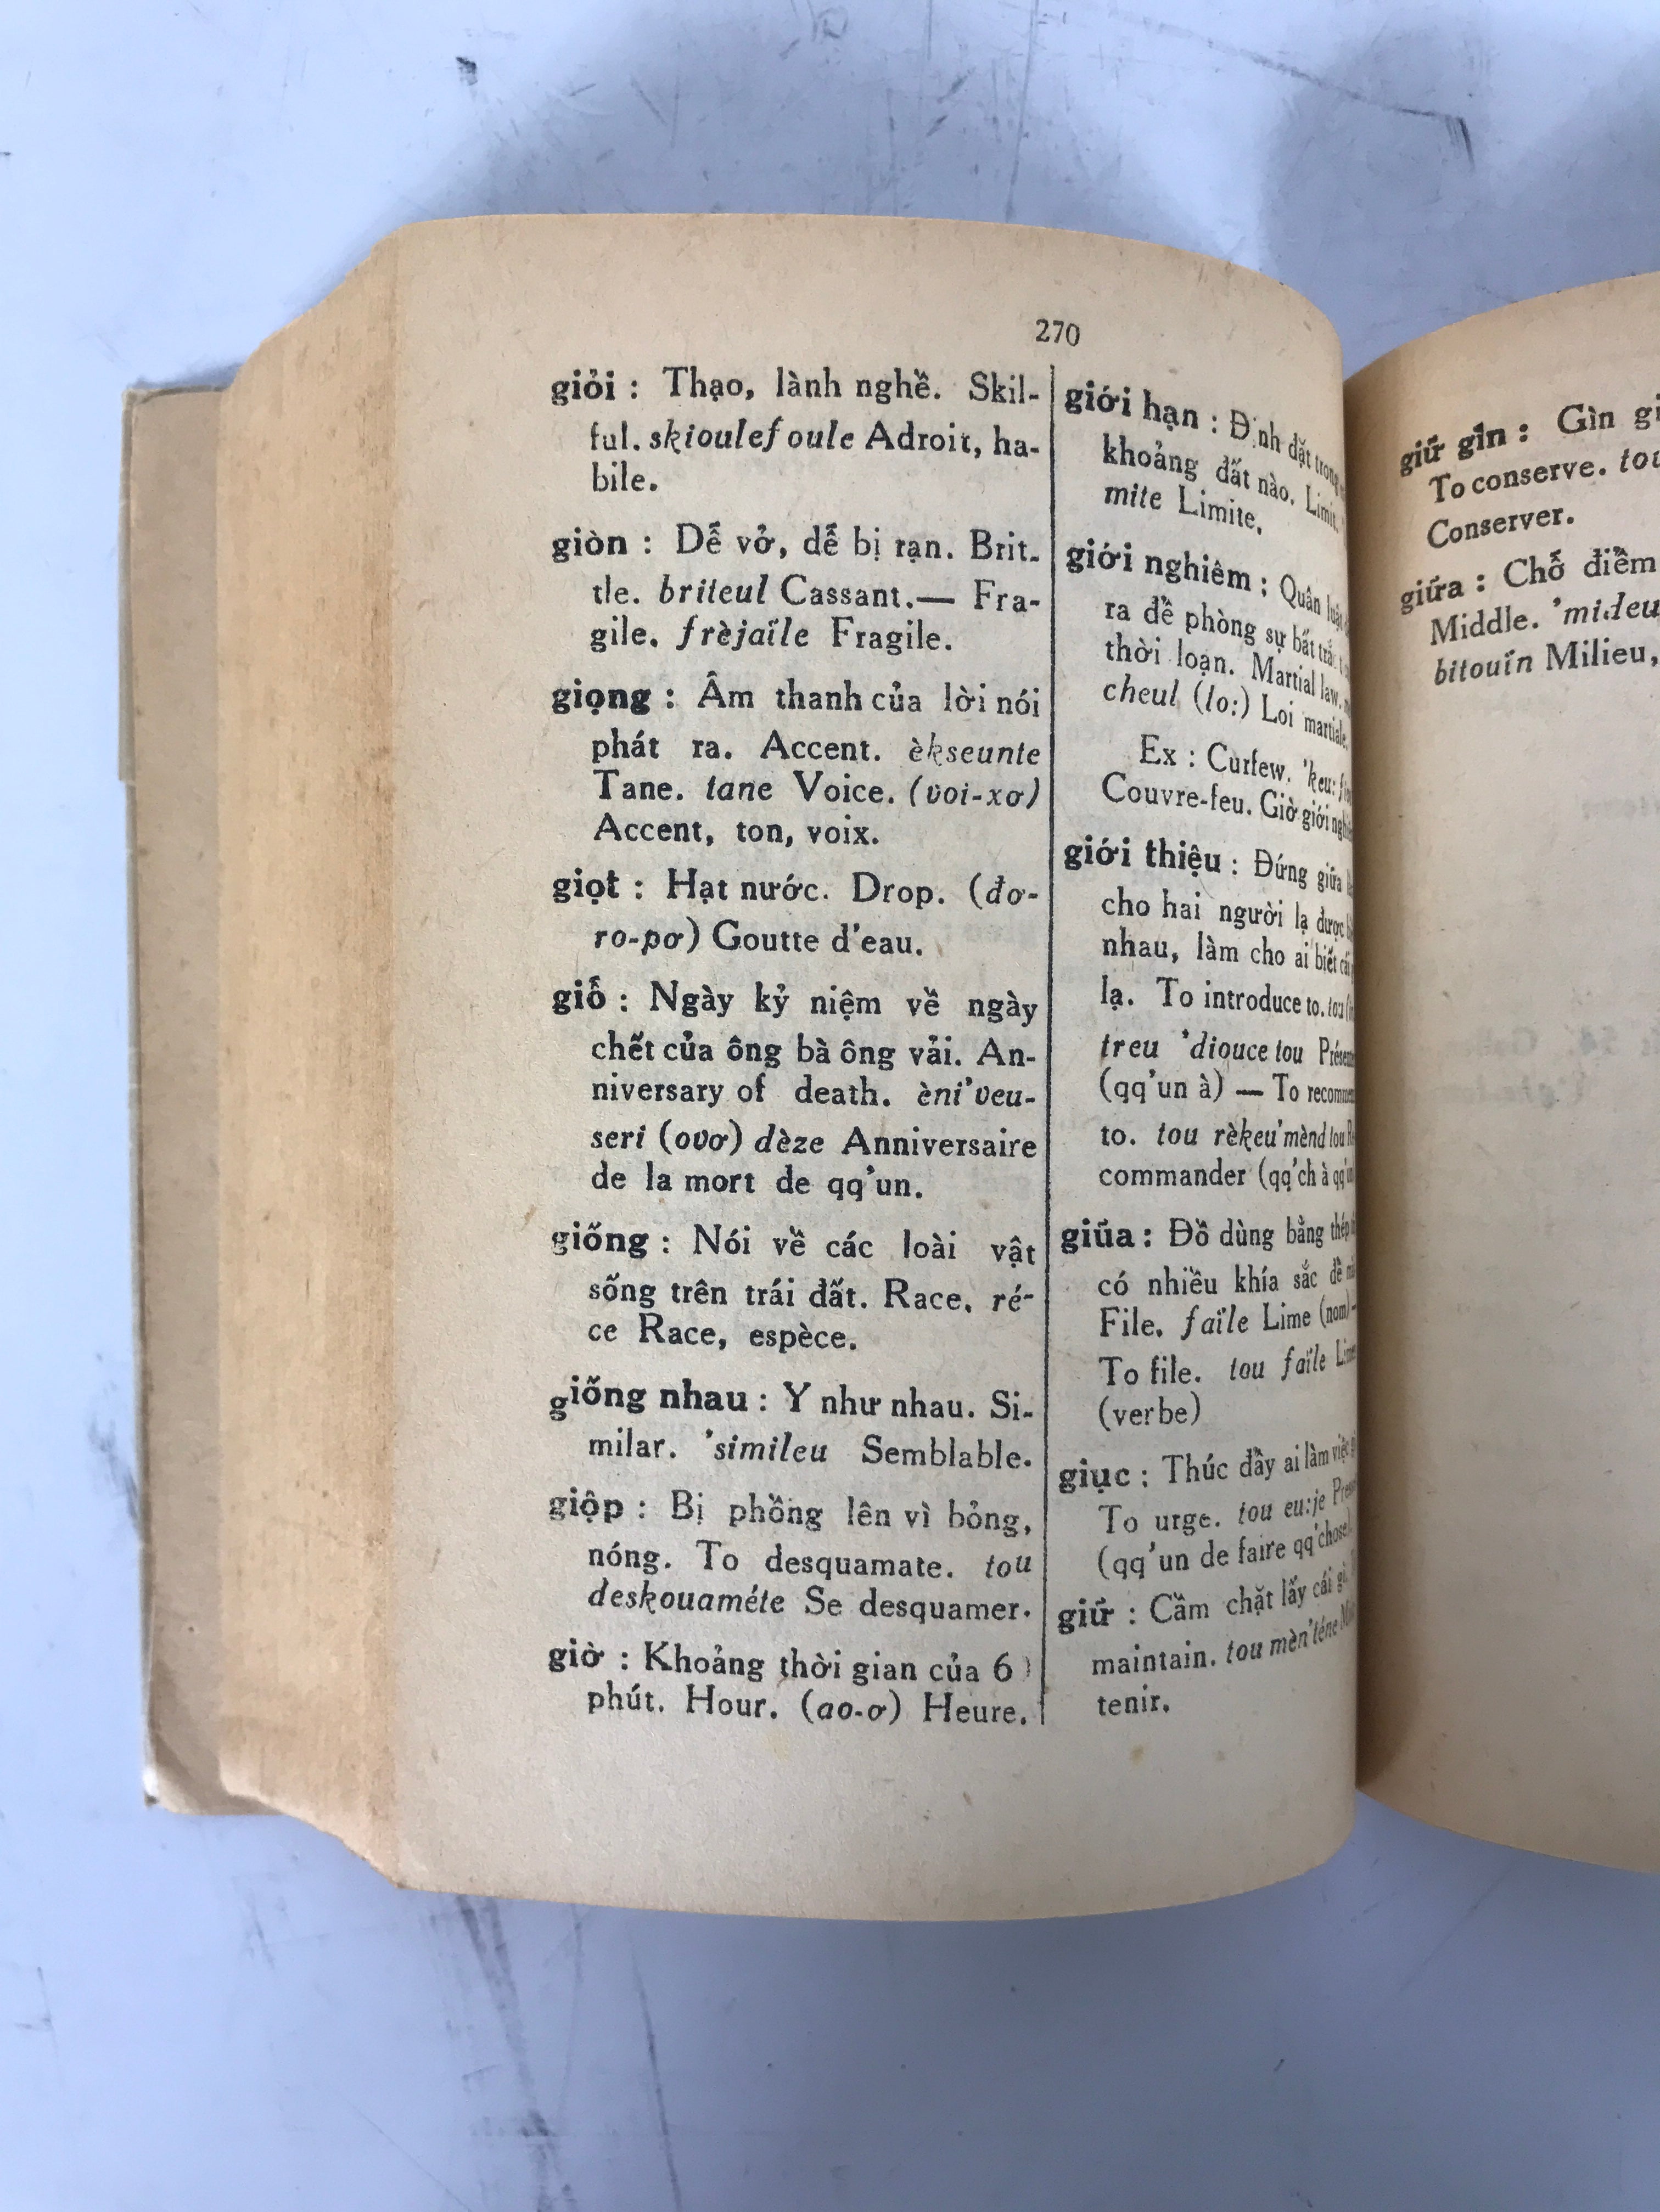 270
giỏi : Thạo, lành nghề. Skil-
ful. skioulefoule Adroit, ha-
bile.
giòn : Dễ vở, dễ bị rạn. Brit-
tle. briteul Cassant.— Fra-
gile. frèjaïle Fragile.
giọng : Âm thanh của lời nói
phát ra. Accent. èkseunte
Tane. tane Voice. (voi-xơ)
Accent, ton, voix.
giọt : Hạt nước. Drop. (đơ-
ro-pơ) Goutte d'eau.
giỗ : Ngày kỷ niệm về ngày
chết của ông bà ông vải. An-
niversary of death. èni'veu-
seri (ovơ) dèze Anniversaire
de la mort de qq'un.
giống : Nói về các loài vật
sống trên trái đất. Race. ré-
ce Race, espèce.
giống nhau : Y như nhau. Si-
milar. 'simileu Semblable.
giộp : Bị phồng lên vì bỏng,
nóng. To desquamate. tou
deskouaméte Se desquamer.
giờ : Khoảng thời gian của 6
phút. Hour. (ao-ơ) Heure.
giới hạn : Định đặt trong
khoảng đất nào. Limit.
mite Limite.
giới nghiêm : Quân luật
ra để phòng sự bất trắc
thời loạn. Martial law.
cheul (lo:) Loi martiale.
Ex : Curfew. 'keu:
Couvre-feu. Giờ giới
giới thiệu : Đứng giữa
cho hai người lạ được
nhau, làm cho ai biết cái
lạ. To introduce to. tou
treu 'diouce tou
(qq'un à) — To
to. tou rèkeu'mènd tou
commander (qq'ch à
giũa : Đồ dùng bằng thép
có nhiều khía sắc để
File. faïle Lime (nom)
To file. tou faïle
(verbe)
giục : Thúc đẩy ai làm việc
To urge. tou eu:je
(qq'un de faire qq'chose).
giữ : Cầm chặt lấy cái gì.
maintain. tou mèn'téne
tenir.
giữ gìn : Gìn
To conserve.
Conserver.
giữa : Chỗ điểm
Middle. 'mideu
bitouïn Milieu,